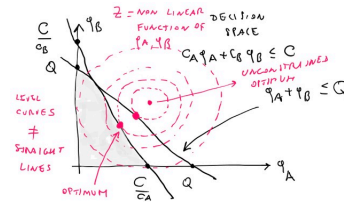 Z = NON LINEAR
FUNCTION OF
q_A, q_B
DECISION
SPACE
C_A q_A + C_B q_B ≤ C
UNCONSTRAINED
OPTIMUM
q_A + q_B ≤ Q
q_B
C
C_B
Q
LEVEL
CURVES
≠
STRAIGHT
LINES
OPTIMUM
C
C_A
Q
q_A